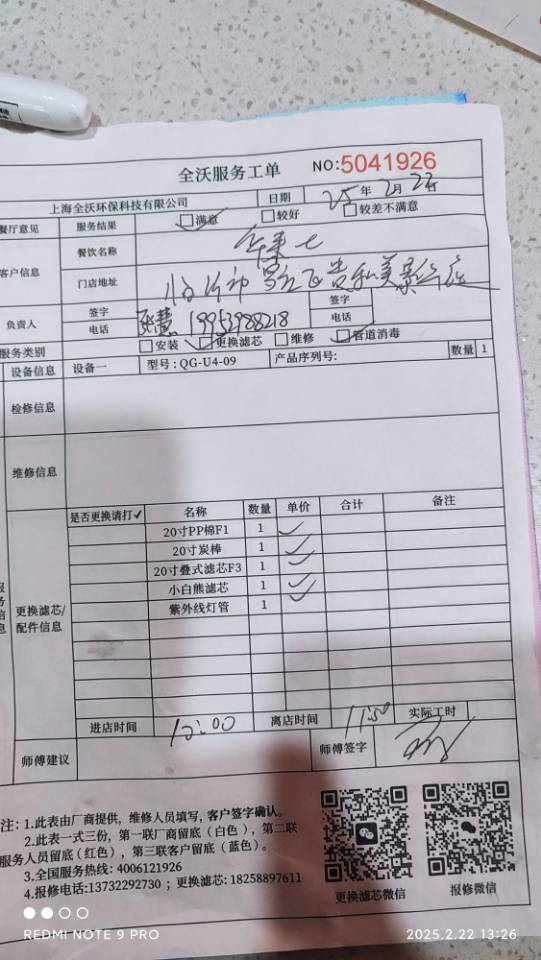 全沃服务工单 NO:5041926
上海全沃环保科技有限公司 日期 25年2月22日
餐厅意见 服务结果 满意 较好 较差不满意
客户信息 餐饮名称
门店地址 临沂市
负责人 签字 签字
电话 19953988218 电话
服务类别 安装 更换滤芯 维修 管道消毒
设备信息 设备一 型号:QG-U4-09 产品序列号: 数量 1
检修信息
维修信息
更换滤芯/配件信息 是否更换请打✓ 名称 数量 单价 合计 备注
20寸PP棉F1 1 ✓
20寸炭棒 1 ✓
20寸叠式滤芯F3 1 ✓
小白熊滤芯 1 ✓
紫外线灯管 1
进店时间 10:00 离店时间 11:50 实际工时
师傅建议 师傅签字
注: 1.此表由厂商提供，维修人员填写, 客户签字确认。
2.此表一式三份，第一联厂商留底（白色），第二联
服务人员留底(红色)，第三联客户留底（蓝色）。
3.全国服务热线: 4006121926
4.报修电话:13732292730；更换滤芯: 18258897611
更换滤芯微信 报修微信
REDMI NOTE 9 PRO 2025.2.22 13:26